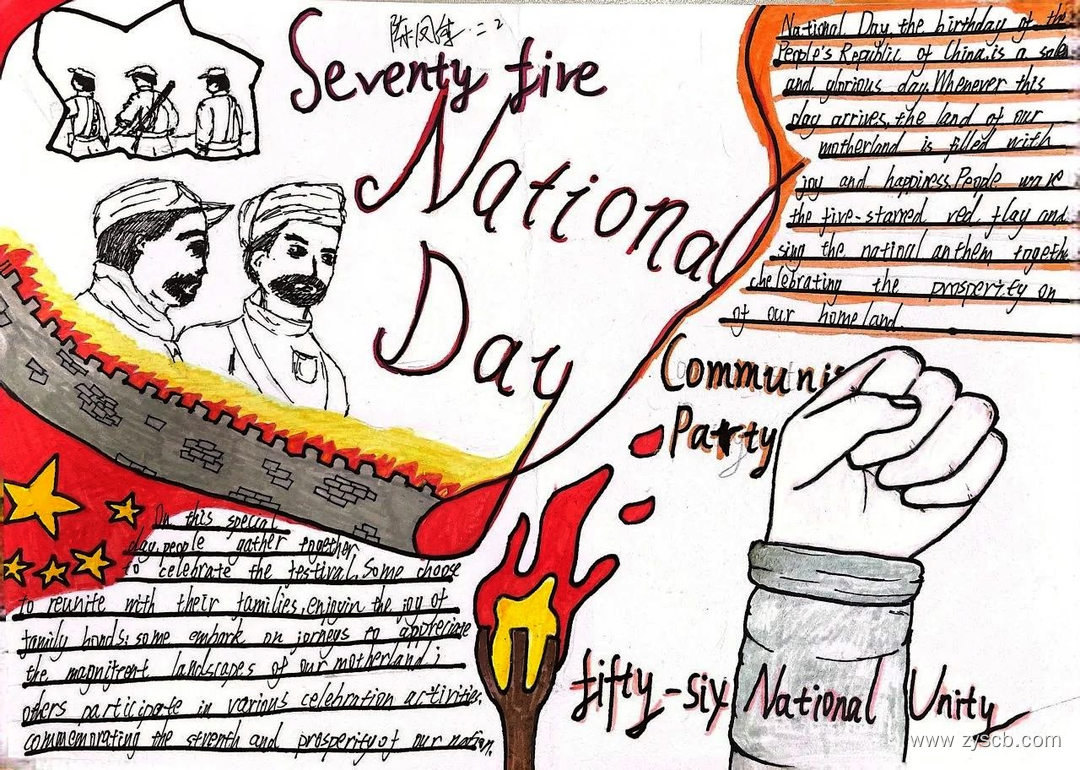 陈凤
Seventy five
National
Day
National Day, the birthday of the
People's Republic of China, is a
and glorious day. Whenever this
day arrives, the land of our
motherland is filled with
joy and happiness. People
the five-starred red flag and
sing the natinal anthem togeth
chelebrating the prosperity on
of our homeland.
Communis
Party
On this special
day, people gather together
to celebrate the festival. Some choose
to reunite with their families, enjoyin the joy of
family bonds; some embark on jorneys to appreciate
the magnifient landscapes of our motherland;
others participate in various celebration activities.
commemorating the strenth and prosperity of our nation.
fifty-six National Unity
www.zyscb.com